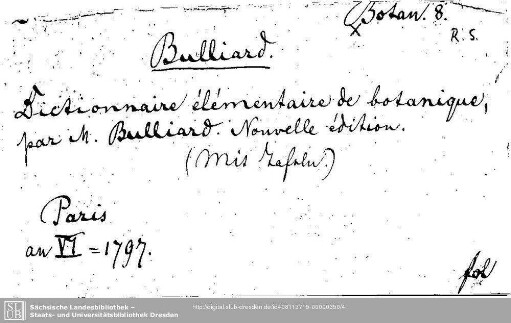 Botan. 8.
R.S.
Bulliard.
Dictionnaire élémentaire de botanique,
par M. Bulliard. Nouvelle édition.
(Mit Tafeln.)
Paris
an VI = 1797.
fol
Sächsische Landesbibliothek –
Staats- und Universitätsbibliothek Dresden